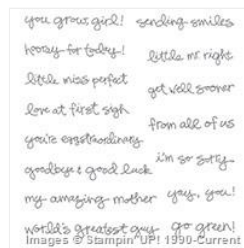 you grow, girl!
sending smiles
hooray for today!
little mr right
little miss perfect
get well sooner
love at first sigh
from all of us
you're eggstraordinary
i'm so sorry
goodbye & good luck
yay, you!
my amazing mother
go green!
world's greatest guy
Images © Stampin' UP! 1990-Current